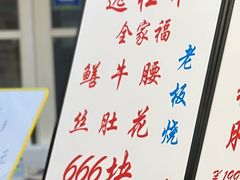 全家福
鳝丝
牛肚
腰花
老板烧
666块